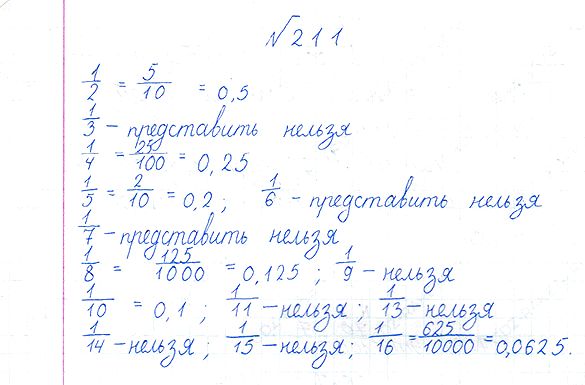 №211.
1/2 = 5/10 = 0,5
1/3 – представить нельзя
1/4 = 25/100 = 0,25
1/5 = 2/10 = 0,2; 1/6 – представить нельзя
1/7 – представить нельзя
1/8 = 125/1000 = 0,125; 1/9 – нельзя
1/10 = 0,1; 1/11 – нельзя; 1/13 – нельзя
1/14 – нельзя; 1/15 – нельзя; 1/16 = 625/10000 = 0,0625.